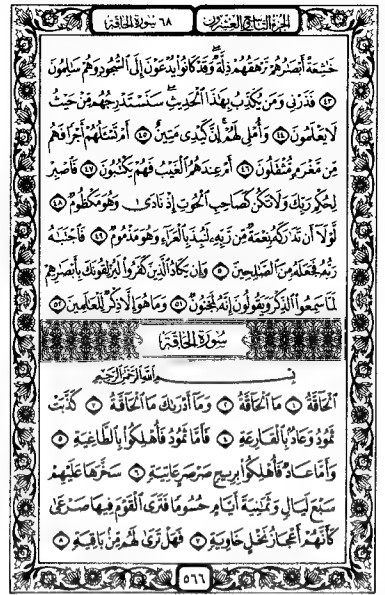 الجزء التاسع والعشرون ٦٨ سورة الحاقة
خَٰشِعَةً أَبْصَٰرُهُمْ تَرْهَقُهُمْ ذِلَّةٌ ۖ وَقَدْ كَانُوا۟ يُدْعَوْنَ إِلَى ٱلسُّجُودِ وَهُمْ سَٰلِمُونَ
٤٣ فَذَرْنِى وَمَن يُكَذِّبُ بِهَٰذَا ٱلْحَدِيثِ ۖ سَنَسْتَدْرِجُهُم مِّنْ حَيْثُ
لَا يَعْلَمُونَ ٤٤ وَأُمْلِى لَهُمْ ۚ إِنَّ كَيْدِى مَتِينٌ ٤٥ أَمْ تَسْـَٔلُهُمْ أَجْرًا فَهُم
مِّن مَّغْرَمٍ مُّثْقَلُونَ ٤٦ أَمْ عِندَهُمُ ٱلْغَيْبُ فَهُمْ يَكْتُبُونَ ٤٧ فَٱصْبِرْ
لِحُكْمِ رَبِّكَ وَلَا تَكُن كَصَاحِبِ ٱلْحُوتِ إِذْ نَادَىٰ وَهُوَ مَكْظُومٌ ٤٨
لَّوْلَآ أَن تَدَٰرَكَهُۥ نِعْمَةٌ مِّن رَّبِّهِۦ لَنُبِذَ بِٱلْعَرَآءِ وَهُوَ مَذْمُومٌ ٤٩ فَٱجْتَبَٰهُ
رَبُّهُۥ فَجَعَلَهُۥ مِنَ ٱلصَّٰلِحِينَ ٥٠ وَإِن يَكَادُ ٱلَّذِينَ كَفَرُوا۟ لَيُزْلِقُونَكَ بِأَبْصَٰرِهِمْ
لَمَّا سَمِعُوا۟ ٱلذِّكْرَ وَيَقُولُونَ إِنَّهُۥ لَمَجْنُونٌ ٥١ وَمَا هُوَ إِلَّا ذِكْرٌ لِّلْعَٰلَمِينَ ٥٢
سورة الحاقة
بِسْمِ ٱللَّهِ ٱلرَّحْمَٰنِ ٱلرَّحِيمِ
ٱلْحَآقَّةُ ١ مَا ٱلْحَآقَّةُ ٢ وَمَآ أَدْرَىٰكَ مَا ٱلْحَآقَّةُ ٣ كَذَّبَتْ
ثَمُودُ وَعَادٌۢ بِٱلْقَارِعَةِ ٤ فَأَمَّا ثَمُودُ فَأُهْلِكُوا۟ بِٱلطَّاغِيَةِ ٥
وَأَمَّا عَادٌ فَأُهْلِكُوا۟ بِرِيحٍ صَرْصَرٍ عَاتِيَةٍ ٦ سَخَّرَهَا عَلَيْهِمْ
سَبْعَ لَيَالٍ وَثَمَٰنِيَةَ أَيَّامٍ حُسُومًا فَتَرَى ٱلْقَوْمَ فِيهَا صَرْعَىٰ
كَأَنَّهُمْ أَعْجَازُ نَخْلٍ خَاوِيَةٍ ٧ فَهَلْ تَرَىٰ لَهُم مِّنۢ بَاقِيَةٍ ٨
٥٦٦